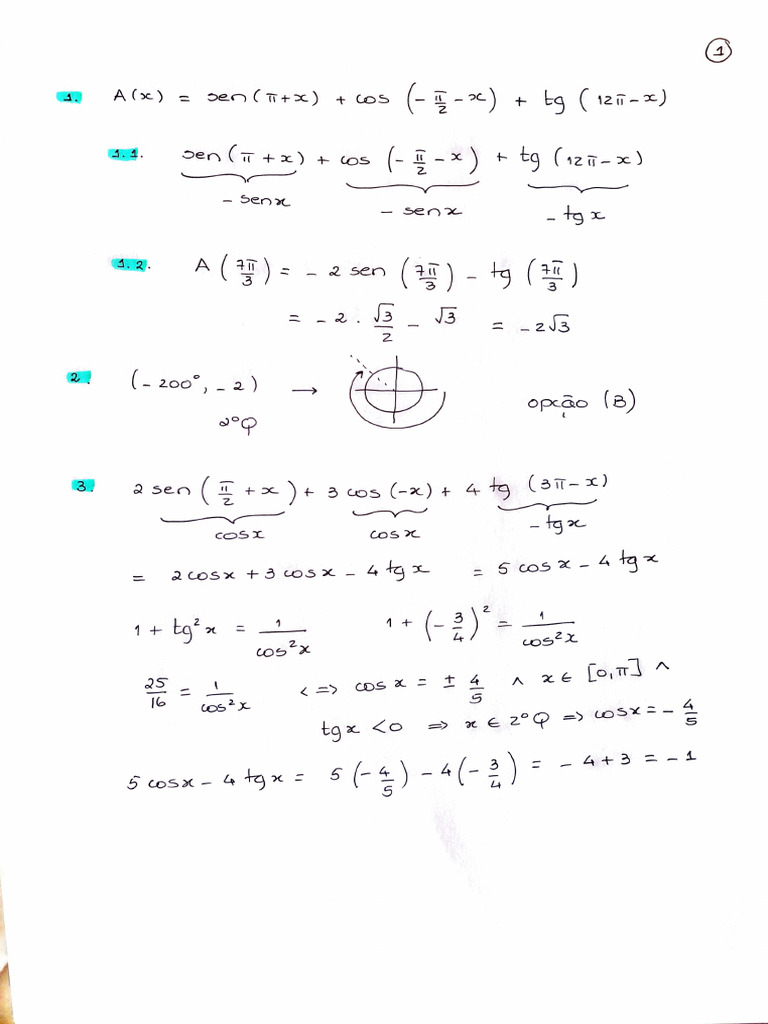 1
1. A(x) = sen(π+x) + cos(-π/2 - x) + tg(12π-x)
1.1. sen(π+x) + cos(-π/2 - x) + tg(12π-x)
-senx - senx - tgx
1.2. A(7π/3) = -2 sen(7π/3) - tg(7π/3)
= -2 . √3/2 - √3 = -2√3
2. (-200°, -2) → opção (B)
2ºQ
3. 2 sen(π/2 + x) + 3 cos(-x) + 4 tg(3π-x)
cosx cosx -tgx
= 2cosx + 3cosx - 4tgx = 5cosx - 4tgx
1 + tg²x = 1/cos²x 1 + (-3/4)² = 1/cos²x
25/16 = 1/cos²x <=> cosx = ± 4/5 ∧ x ∈ [0,π] ∧
tgx < 0 => x ∈ 2ºQ => cosx = -4/5
5cosx - 4tgx = 5(-4/5) - 4(-3/4) = -4+3 = -1